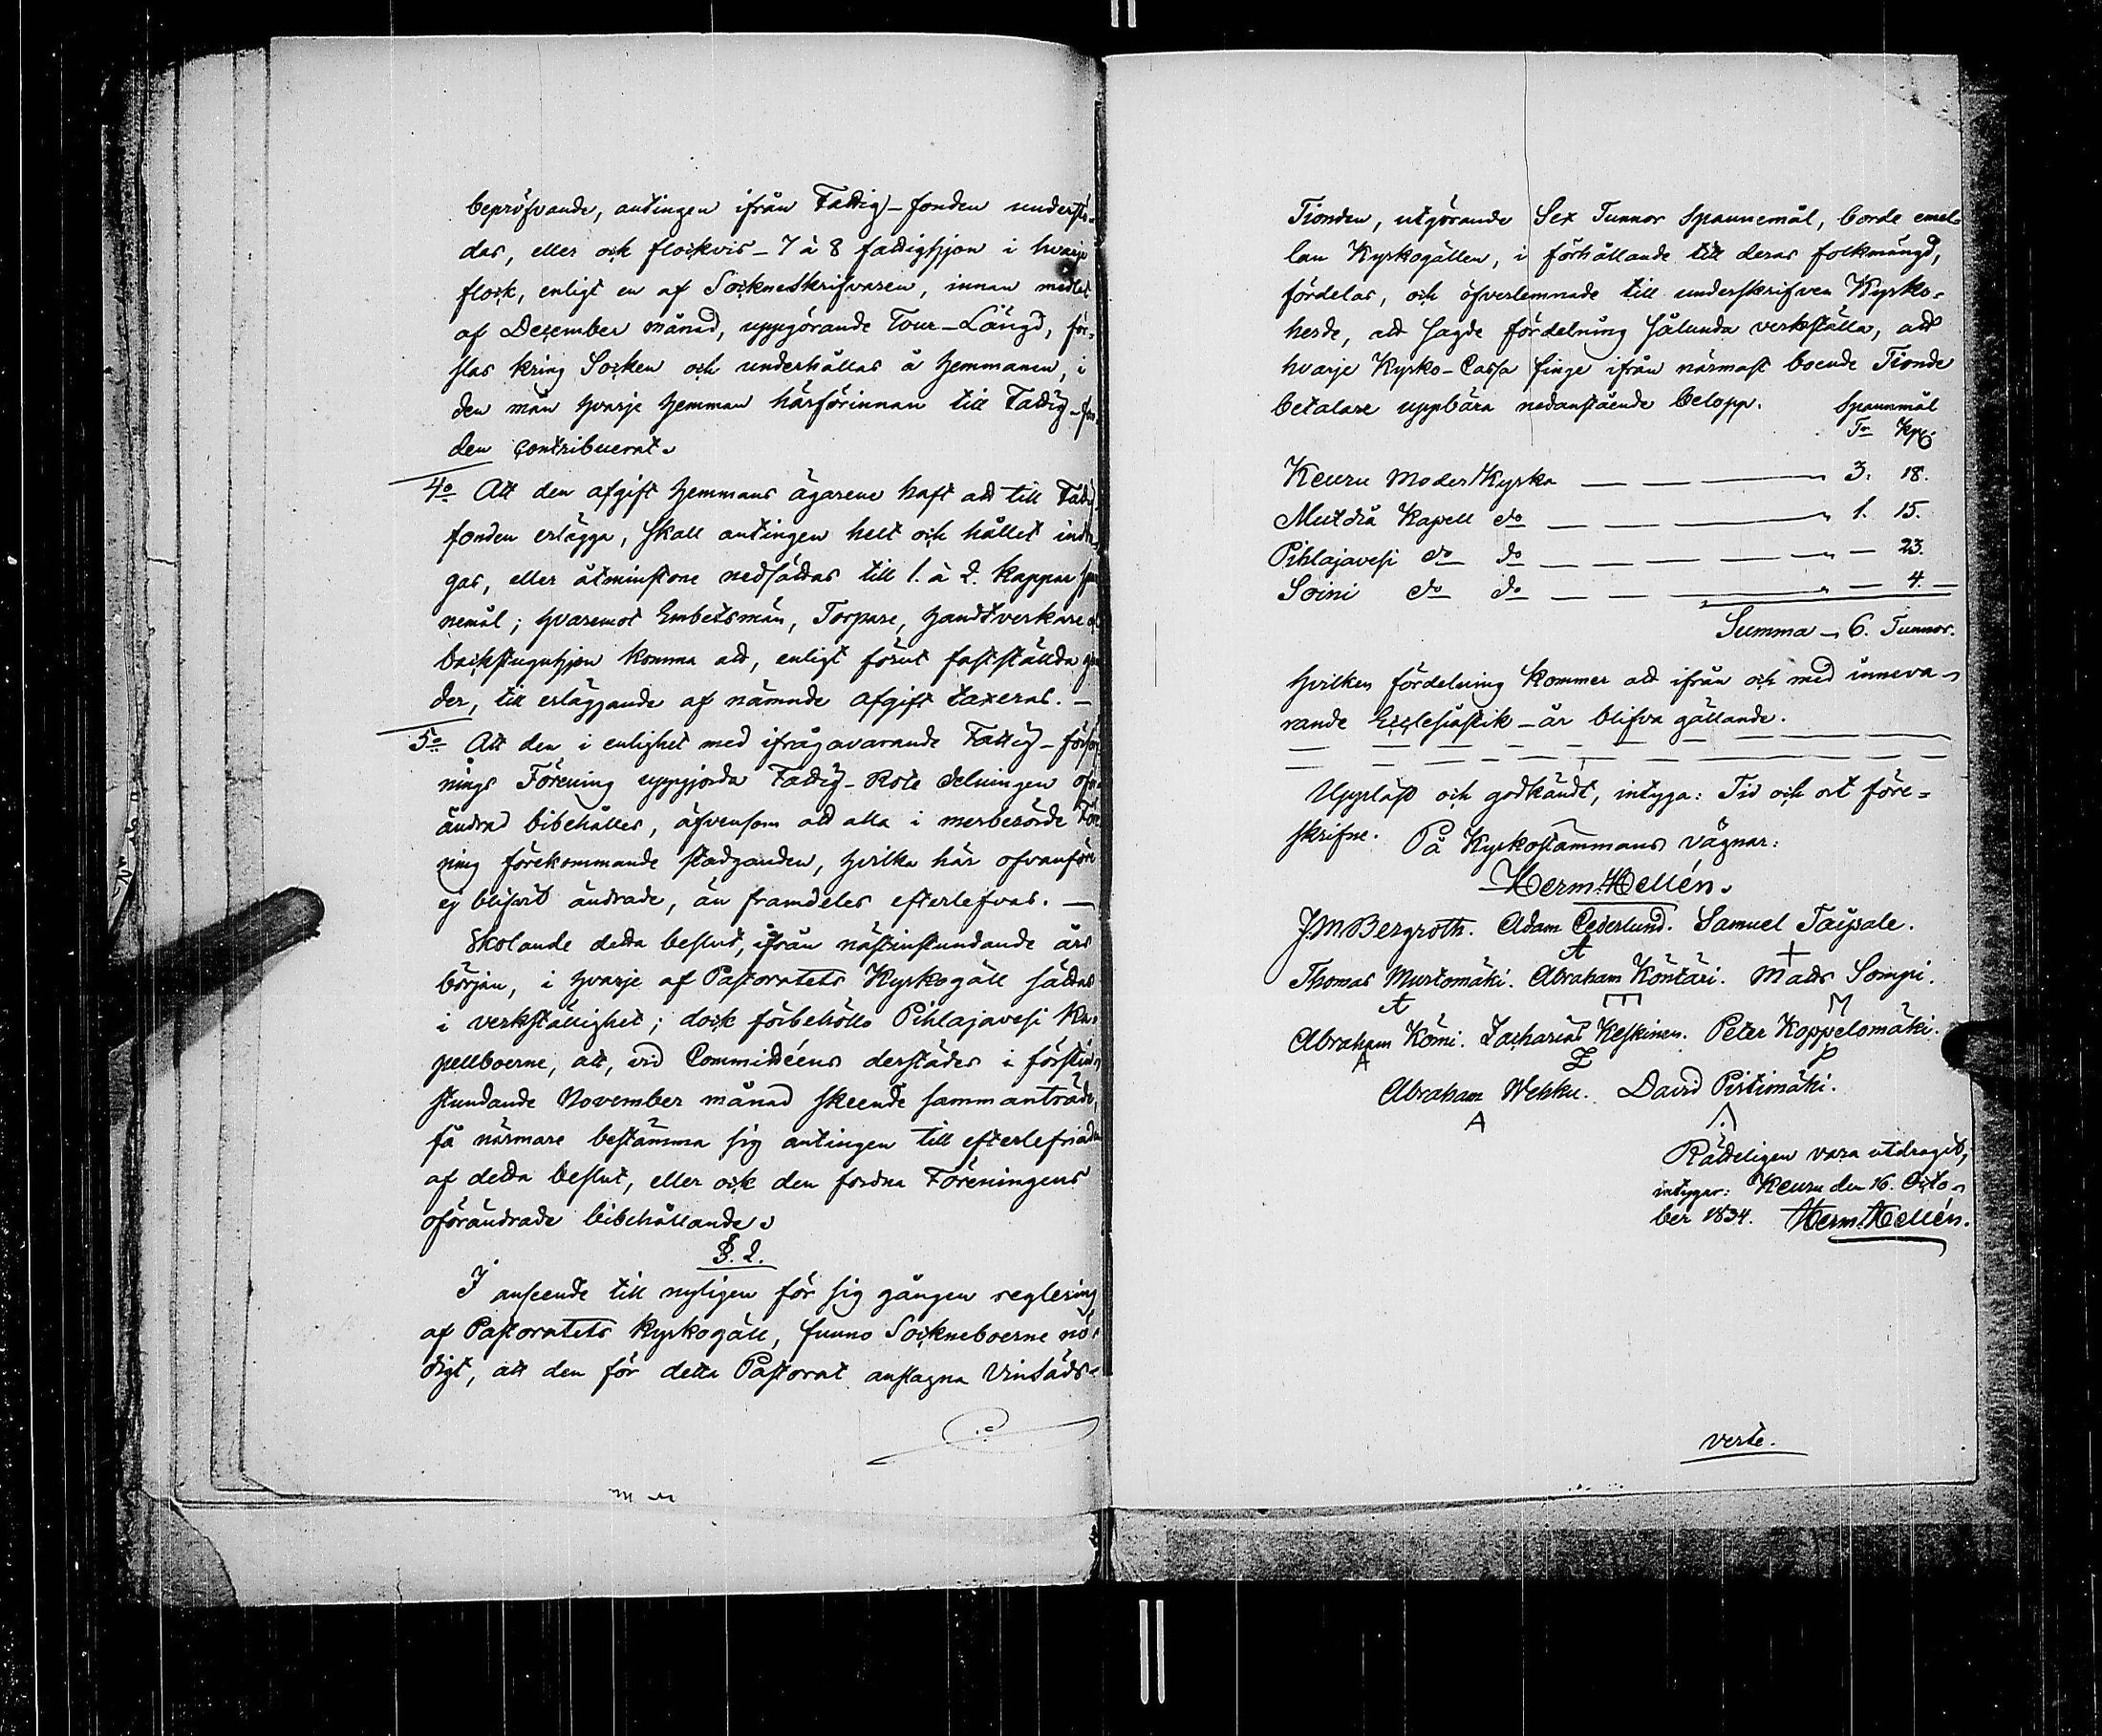 bepröfvande, antingen ifrån Fattig-fonden understö-
das, eller ock flockvis - 7 à 8 fattighjon i hvarje
flock, enligt en af Sockneskrifvaren, innan medlet
af December månad, uppgörande Tour-Längd, för-
slas kring Socken och underhållas å hemmanen, i
den mån hvarje hemman härförinnan till Fattig-fon
den contribuerat.
4o Att den afgift hemmans ägarene haft att till Fattig
fonden erlägga, skall antingen helt och hållet indra-
gas, eller åtminstone nedsättas till 1. à 2. kappar span
nemål; hvaremot Embetsmän, Torpare, handtverkare och
backstuguhjon komma att, enligt förut faststälda grun
der, till erläggande af nämnde afgift taxeras. -
5o Att den i enlighet med ifrågavarande Fattig-försörj
nings Förening uppgjorda Fattig-Rote delningen oför
ändrad bibehålles, äfvensom att alla i merberörde Före
ning förekommande stadganden, hvilka här ofvanföre
ej blifvit ändrade, än framdeles efterlefvas. -
Skolande detta beslut, ifrån nästinstundande års
början, i hvarje af Pastoratets Kyrkogäll sättas
i verkställighet; dock förbehöllo Pihlajavesi Ka-
pellboerne, att, vid Committéens derstädes i först in-
stundande November månad skeende sammanträde,
få närmare bestämma sig antingen till efterlefnaden
af detta beslut, eller ock den fordna Föreningens
oförändrade bibehållande.
§. 2.
I anseende till nyligen för sig gången reglering
af Pastoratets Kyrkogäll, funno Sockneboerne nö-
digt, att den för detta Pastorat anslagna Vinsäds-
Tionden, utgörande Sex Tunnor Spannemål, borde emel-
lan Kyrkogällen, i förhållande till deras folkmängd,
fördelas, och öfverlemnade till underskrifven Kyrko-
herde, att sagde fördelning sålunda verkställa, att
hvarje Kyrko-Cassa finge ifrån närmast boende Tionde
betalare uppbära nedanstående belopp. Spannmål
Tr Kpr
Keuru Moderkyrka - - - 3. 18.
Multia Kapell do - - - 1. 15.
Pihlajavesi do do - - - - 23.
Soini do do - - - - 4. -
Summa - 6. Tunnor.
hvilken fördelning kommer att ifrån och med inneva-
rande Ecclesiastik-år blifva gällande.
Uppläst och godkändt, intyga: Tid och ort före-
skrifne. På Kyrkostämmans vägnar:
Herm. Hellén.
J.M Bergroth. Adam Cederlund. Samuel Taipale.
Thomas Murtomäki. Abraham Köntäri. Matts Sompi.
Abraham Kömi. Zacharias Keskinen. Peter Koppelomäki.
A Z P
Abraham Wehku. David Pirtimäki.
A
Rätteligen vara utdraget,
intygar: Keuru den 16. Octo-
ber 1834. Herm. Hellén.
verte.